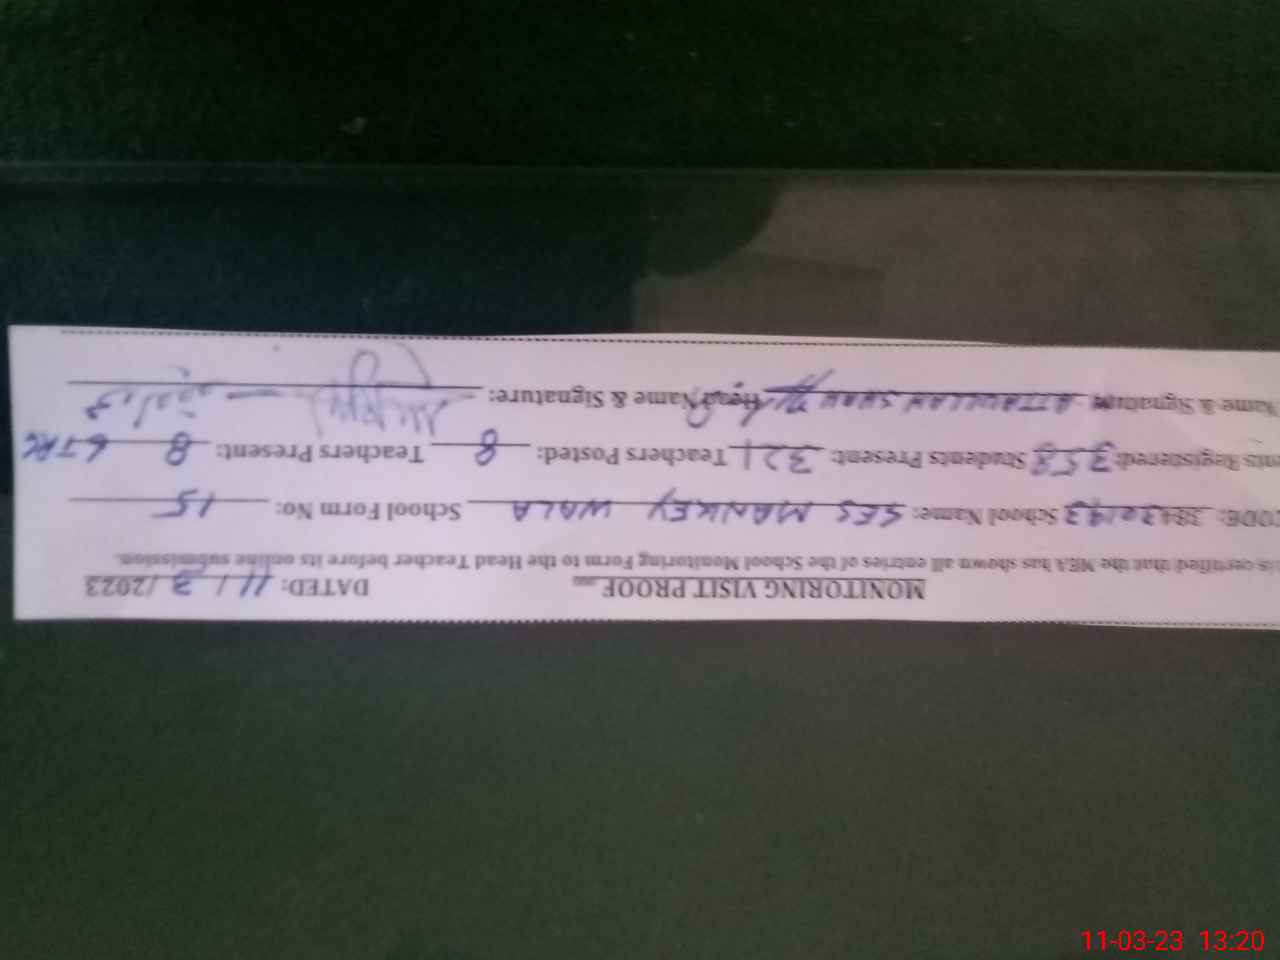 MONITORING VISIT PROOF DATED: 11 / 3 /2023
is certified that the MEA has shown all entries of the School Monitoring Form to the Head Teacher before its online submission.
ODE: 38430193 School Name: SES MANKEY WALA School Form No: 15
nts Registered: 358 Students Present: 321 Teachers Posted: 8 Teachers Present: 8
Name & Signature ATTAULLAH SHAH Head Name & Signature:
11-03-23 13:20